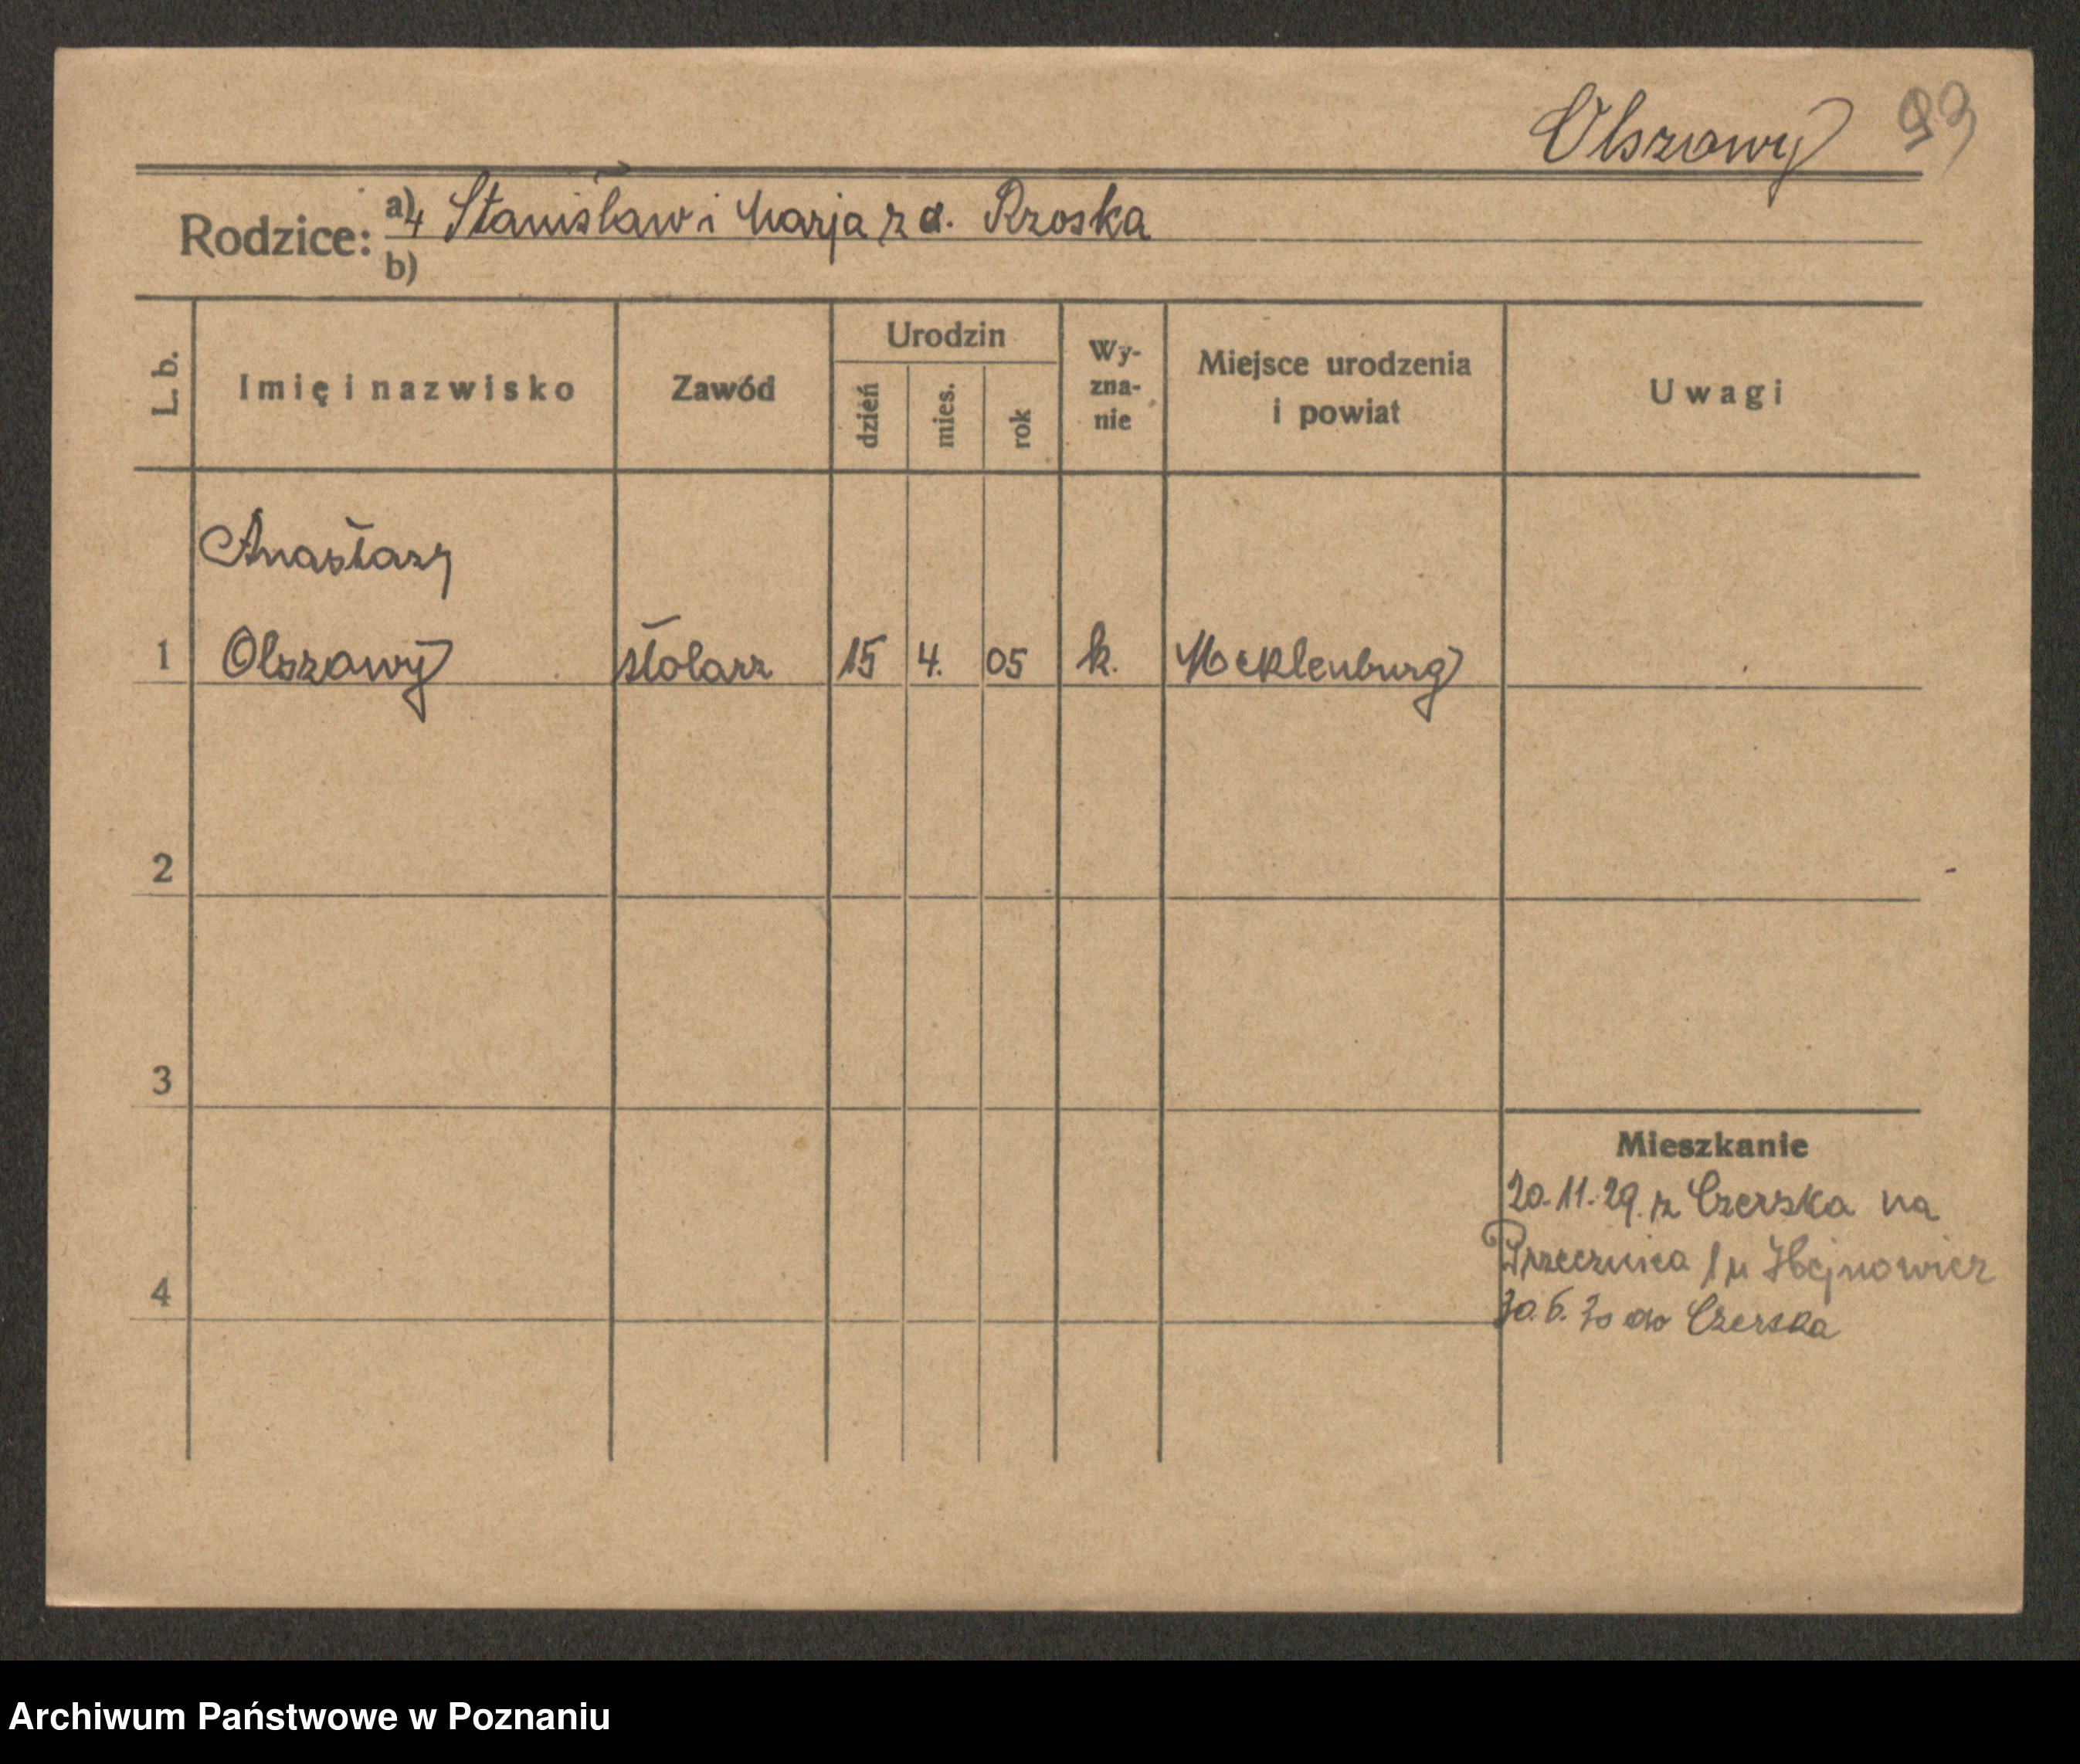 Olszowy 99
Rodzice: a) Stanisław i Marja z d. Rzoska
b)
L. b.
Imię i nazwisko
Zawód
Urodzin
dzień
mies.
rok
Wy-
zna-
nie
Miejsce urodzenia
i powiat
Uwagi
Anastazy
1 Olszowy stolarz 15 4. 05 k. Mecklenburg
2
3
Mieszkanie
20.11.29. z Czerska na
Przecznica 1 u
4
30.6.30 do Czerska
Archiwum Państwowe w Poznaniu